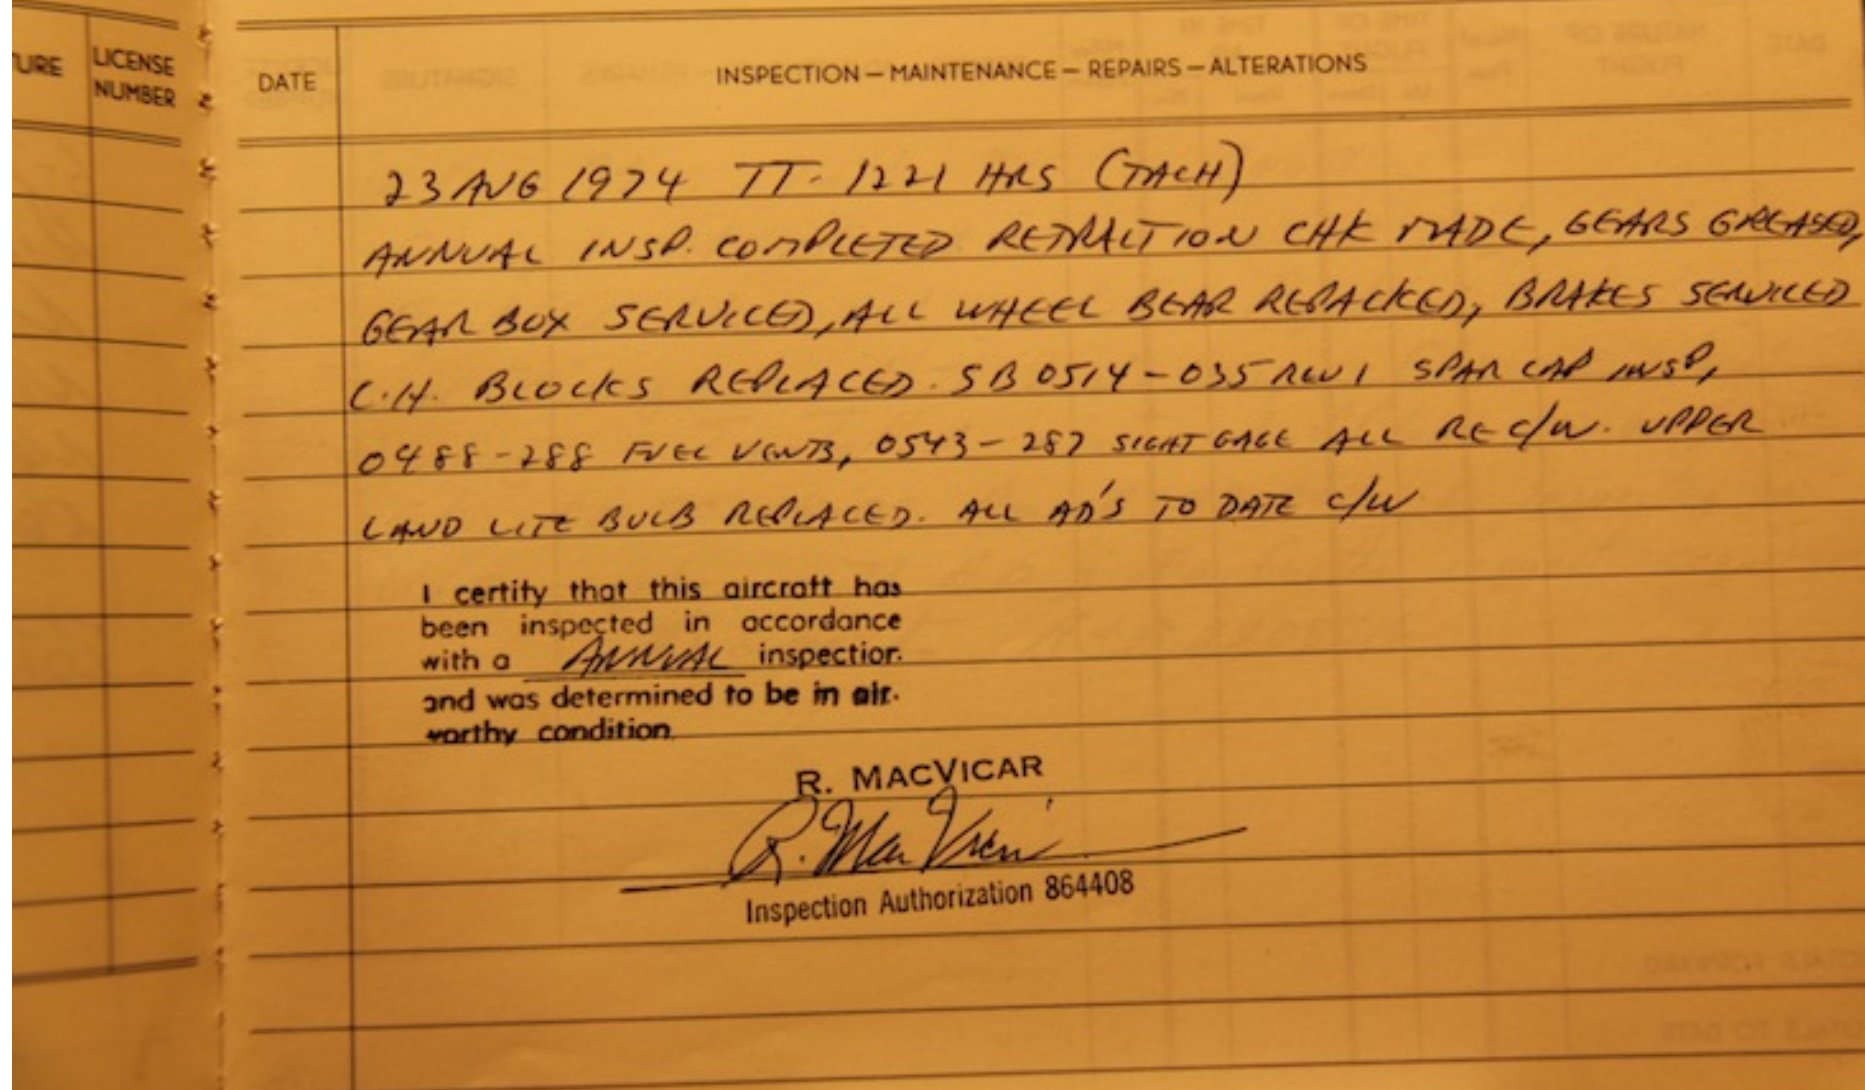 TURE
LICENSE
NUMBER
DATE
INSPECTION — MAINTENANCE — REPAIRS — ALTERATIONS
23 AUG 1974 TT. 1221 HRS (TACH)
ANNUAL INSP. COMPLETED RETRACTION CHK MADE, GEARS GREASED,
GEAR BOX SERVICED, ALL WHEEL BEAR REPACKED, BRAKES SERVICED
C.H. BLOCKS REPLACED. SB 0514-035 REV 1 SPAR CAP INSP,
0488-288 FUEL VENTS, 0543-287 SIGHT GAGE ALL RE C/W. UPPER
LAND LITE BULB REPLACED. ALL AD'S TO DATE C/W
I certify that this aircraft has
been inspected in accordance
with a ANNUAL inspection
and was determined to be in air-
worthy condition.
R. MACVICAR
R. MacVicar
Inspection Authorization 864408